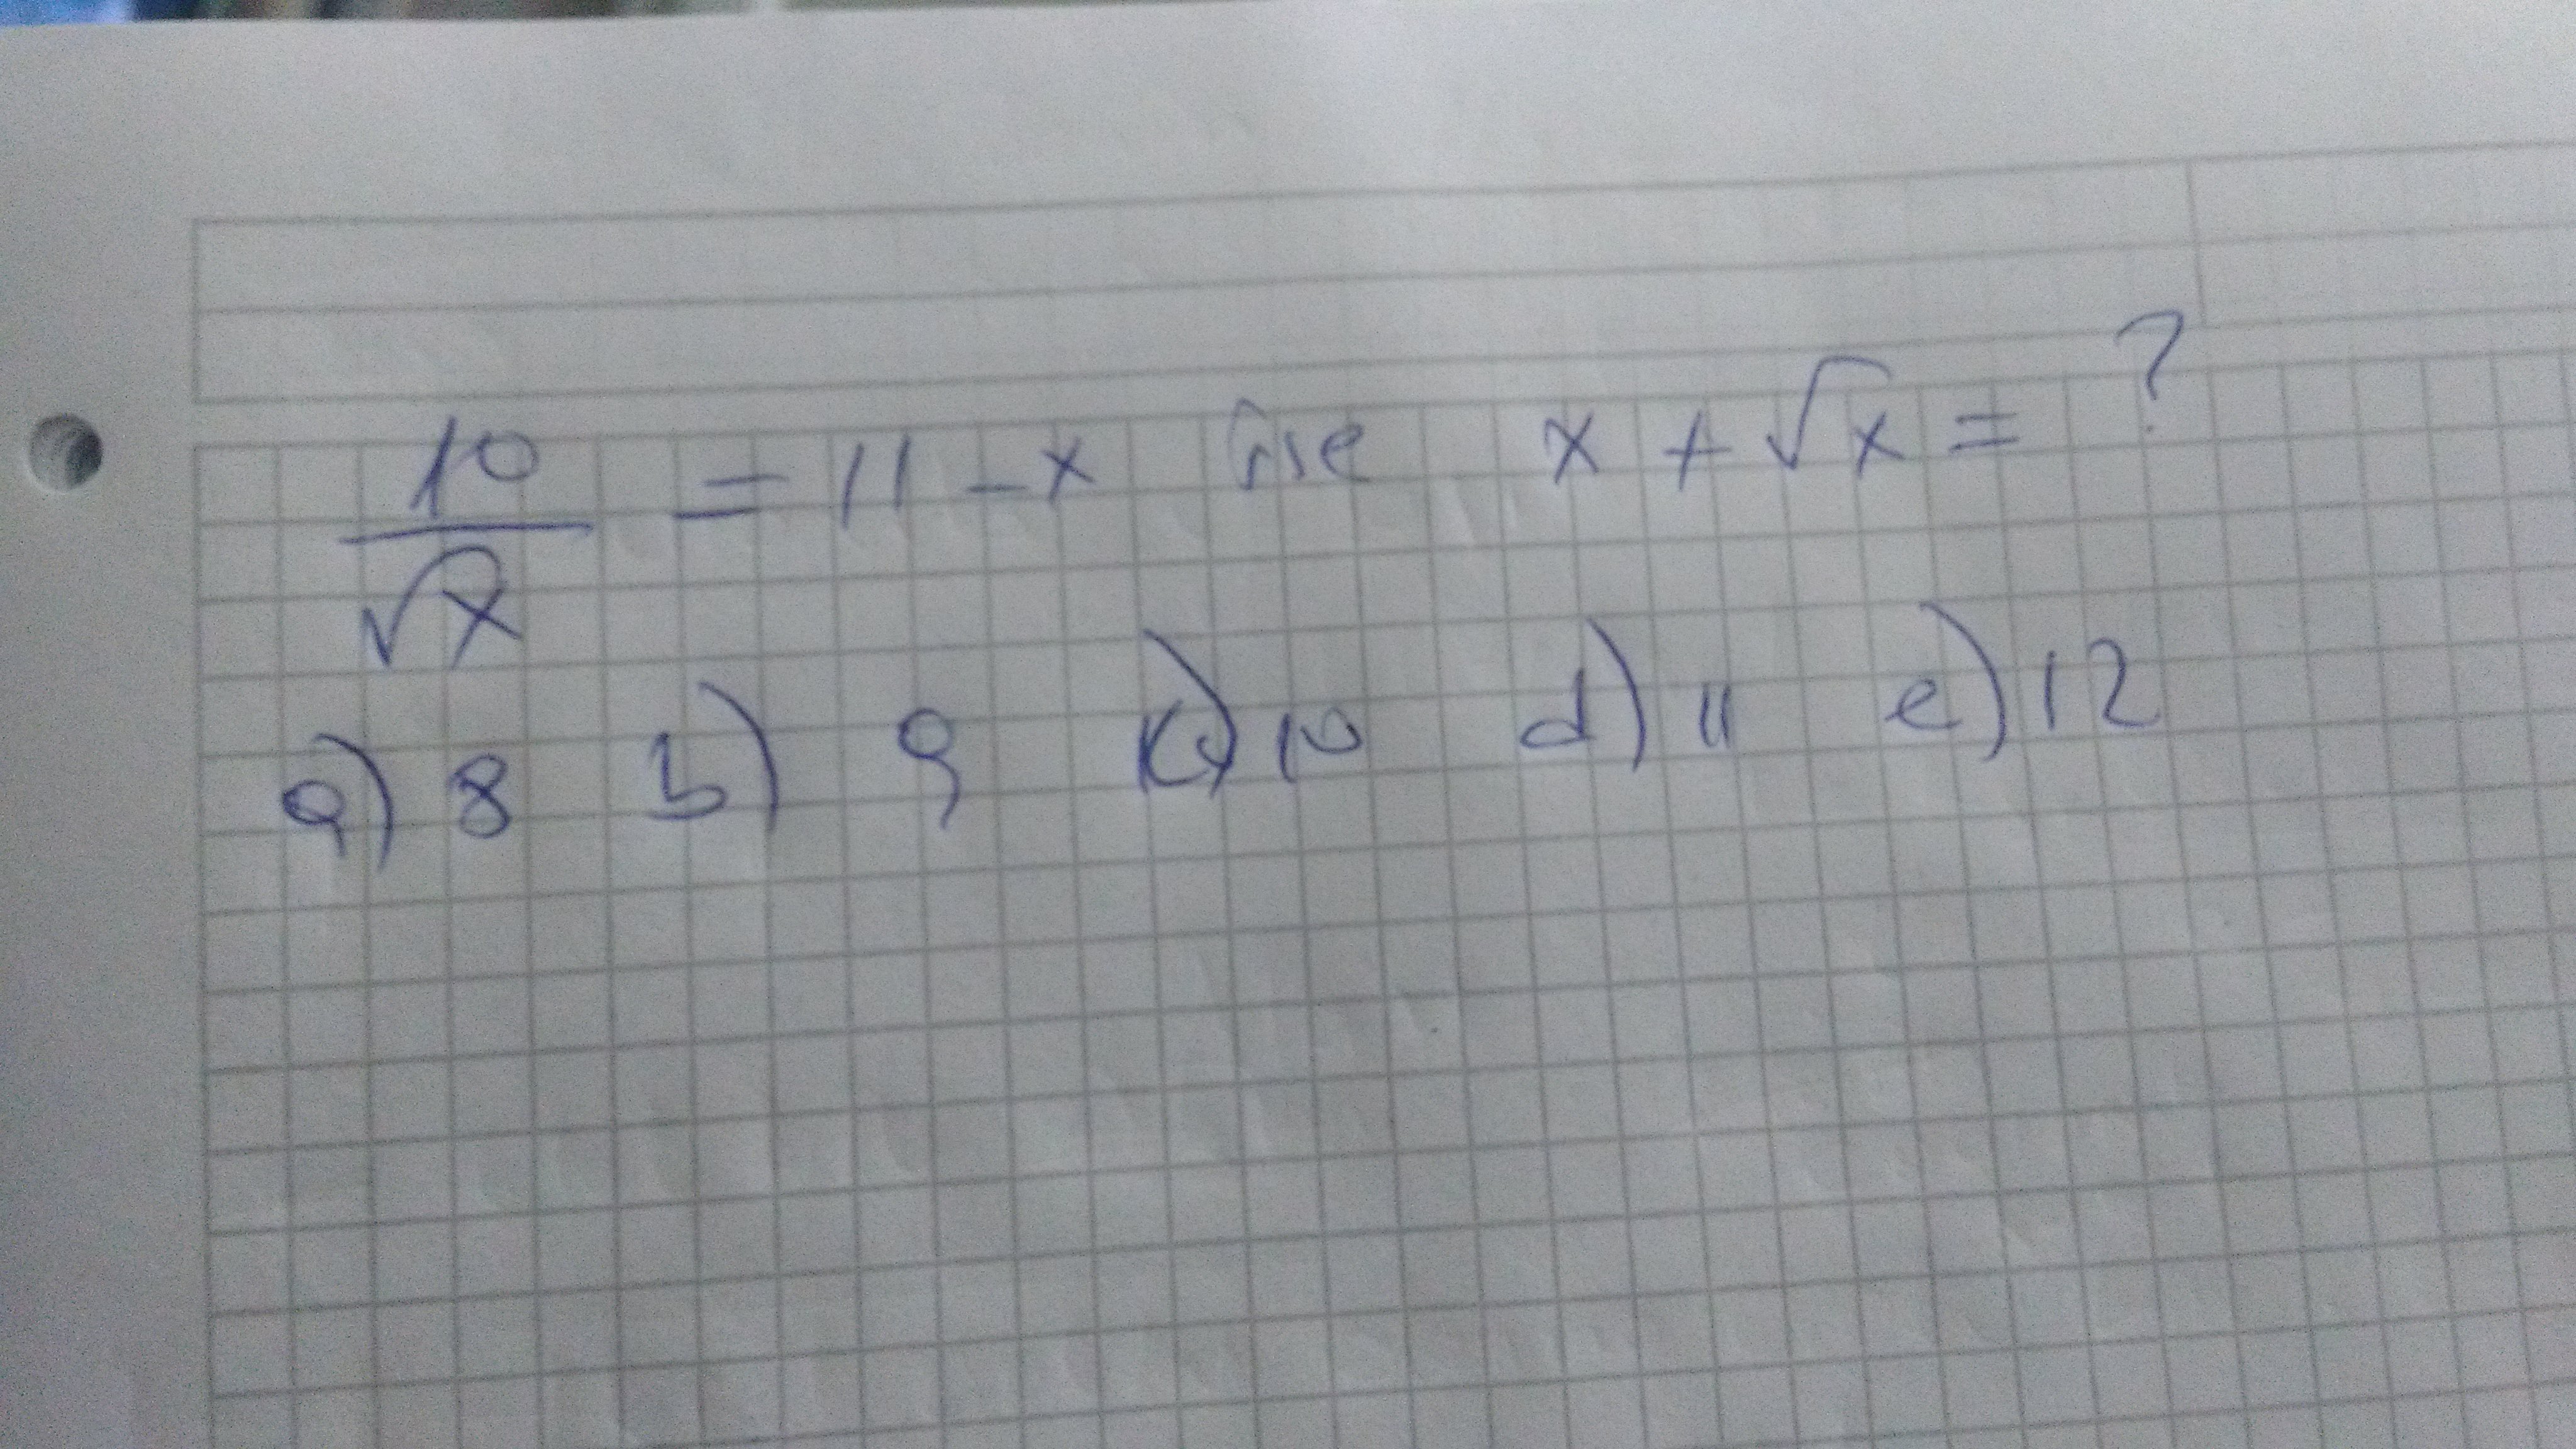 10/√x = 11 - x ise x + √x = ?
a) 8 b) 9 c) 10 d) 11 e) 12